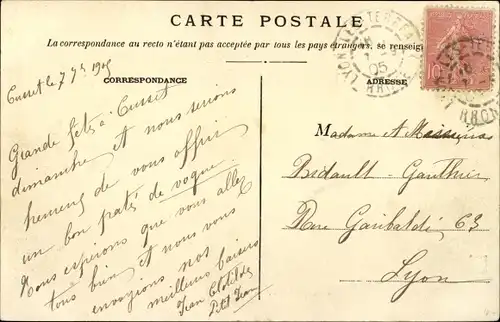 CARTE POSTALE
La correspondance au recto n'étant pas acceptée par tous les pays étrangers, se renseign
CORRESPONDANCE
ADRESSE
Cusset le 7 7bre 1905
Grande fête à Cusset
dimanche et nous serions
heureux de vous offrir
un bon pâté de vogue.
Nous espérons que vous allez
tous bien et nous vous
envoyons nos
meilleurs baisers
Jean Clotilde
Petit Jean
Madame et Messieurs
Bidault-Gauthier
Rue Garibaldi 63
Lyon
LYON LES TERREAUX
05
RHONE
10
RHONE